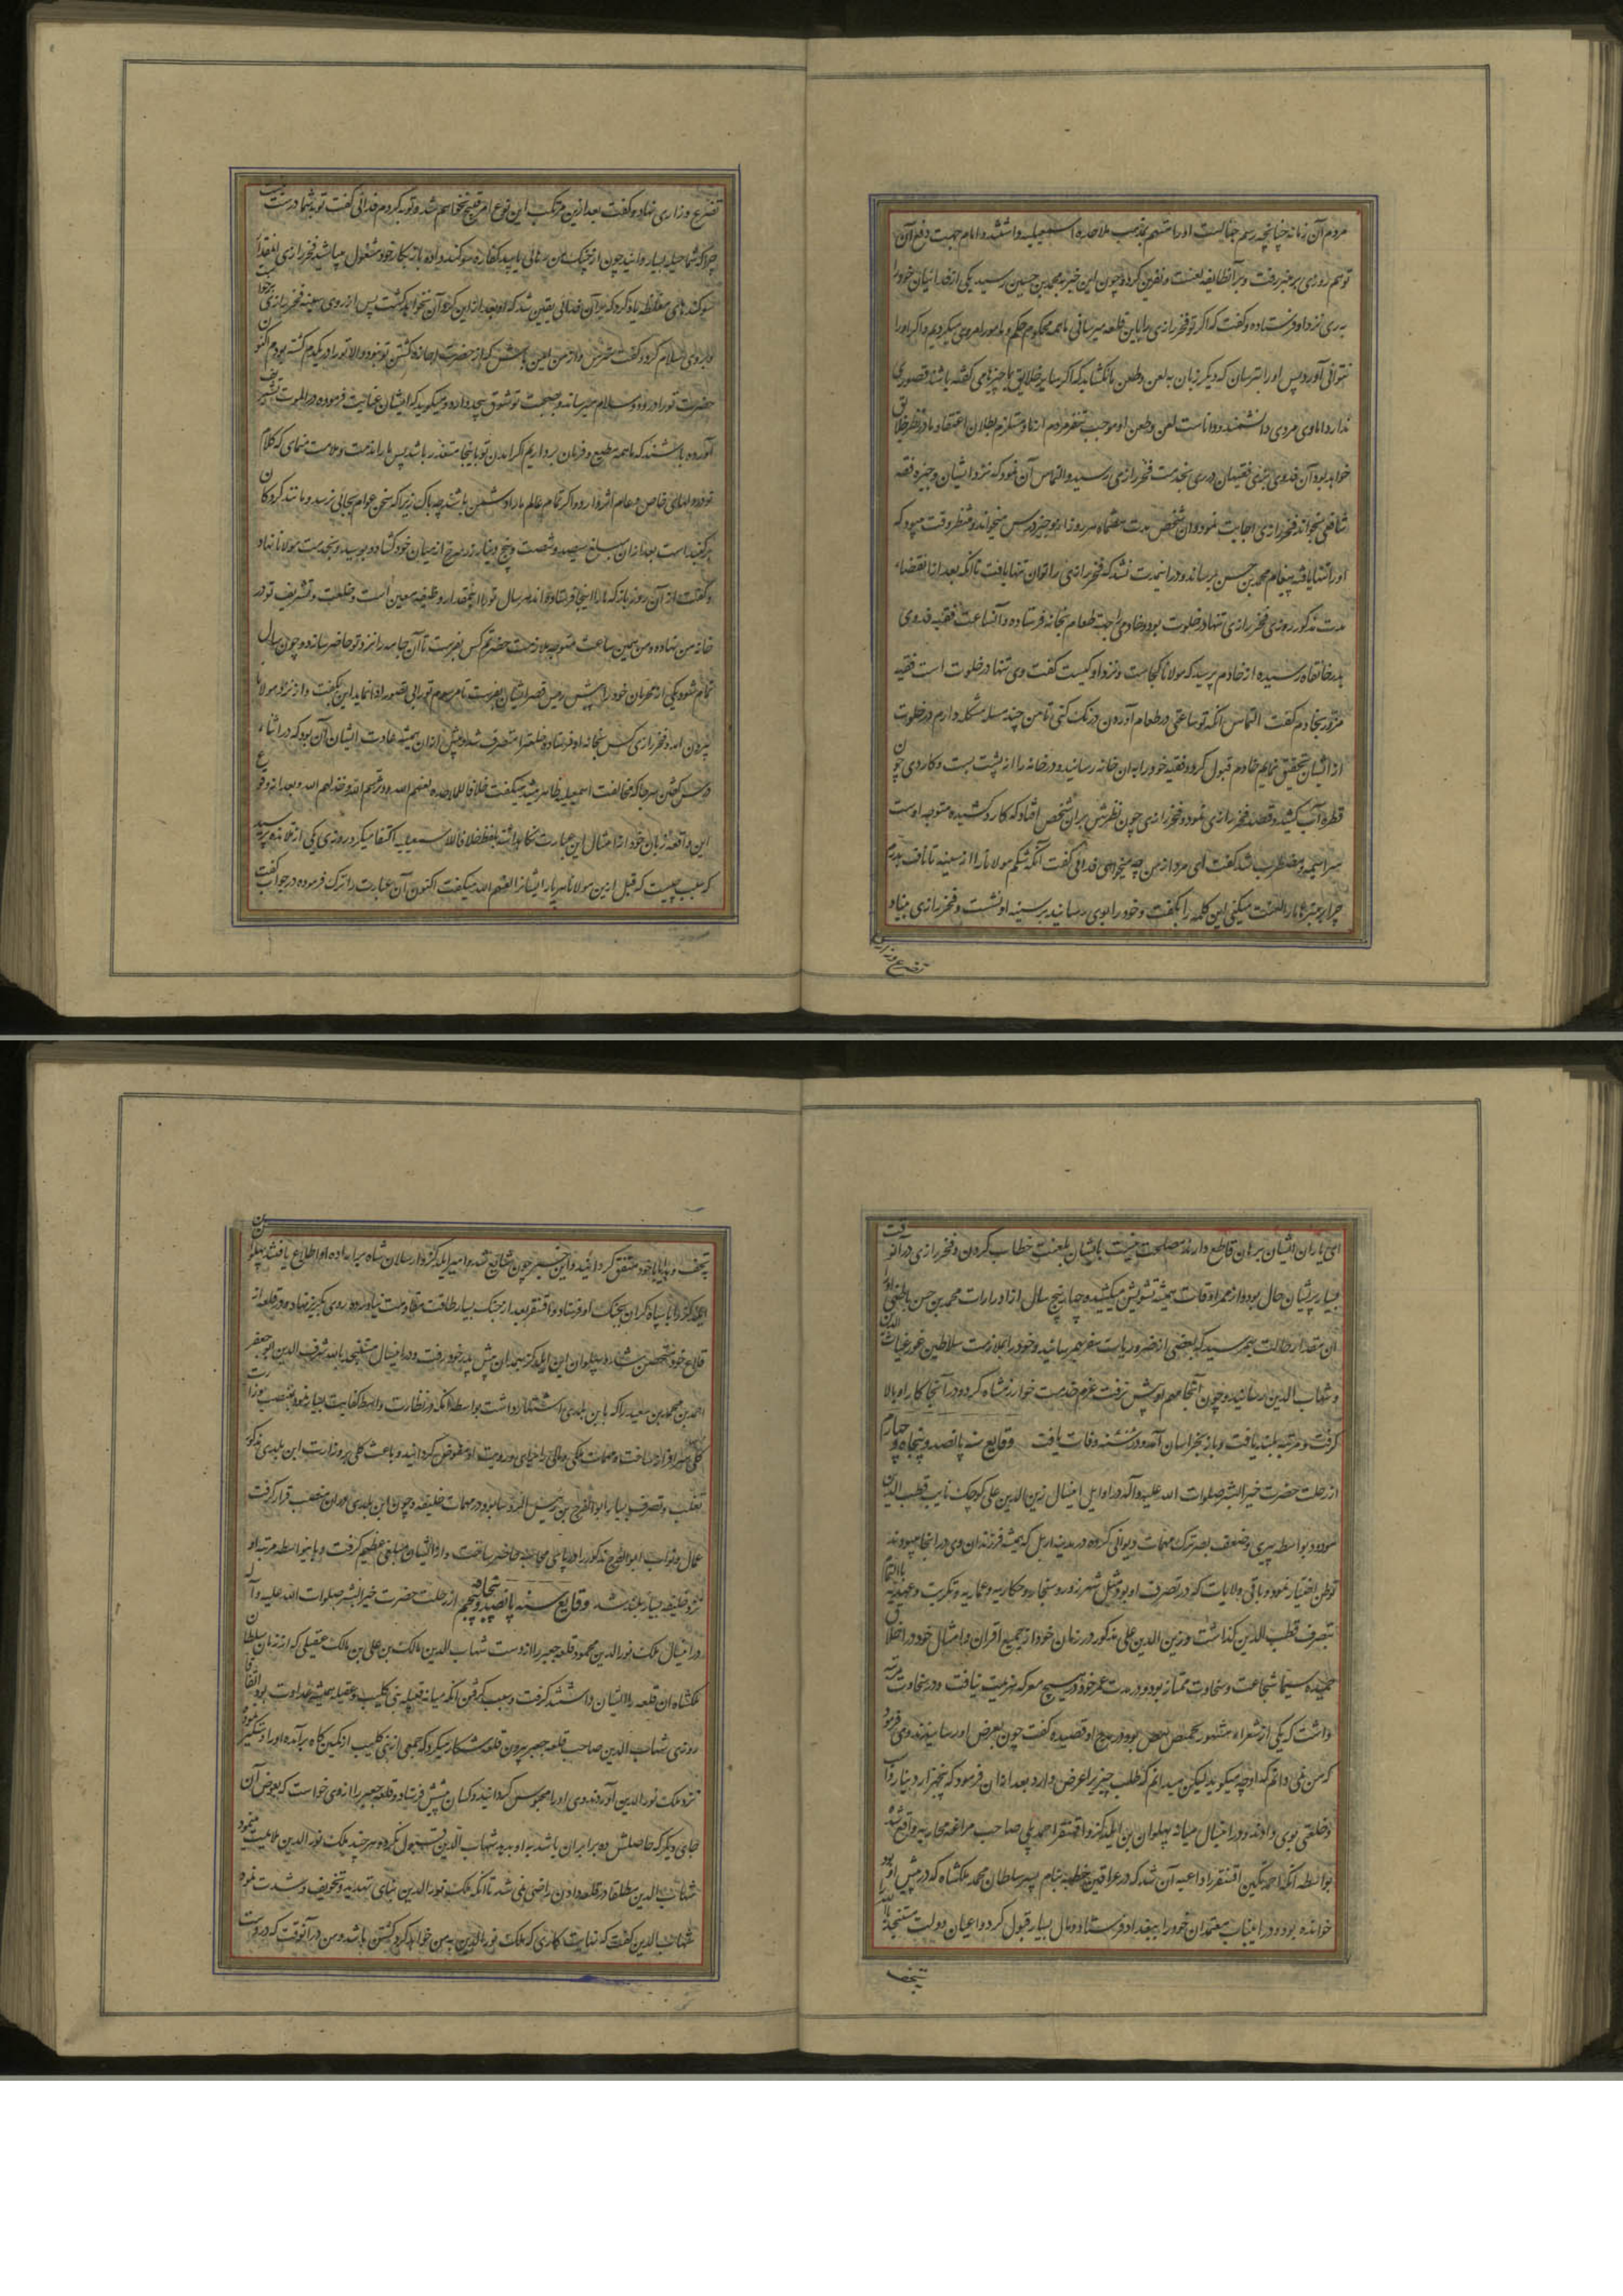 مردم آن زمانه چنانچه رسم جهال است او را متهم بمذهب ملاحده اسمعیلیه داشتند و امام جهت دفع آن
توهم روزی بر منبر رفت و بر آنطایفه لعنت و نفرین کرد و چون این خبر بمحمد بن حسین رسید یکی از فدائیان خود را
به ری نزد او فرستاده و گفت که اگر تو فخر رازی را باین قلعه میرسانی ما همه محکوم حکم و مامور امر وی میگردیم و اگر او را
نتوانی آورد پس او را بترسان که دیگر زبان به لعن و طعن ما نگشاید که اگر سایر خلایق ما چیزها می گفته باشند قصوری
ندارد اما وی مردی دانشمند و داناست لعن و طعن او موجب تنفر مردم از ما و مستلزم بطلان اعتقاد ما در نظر خلایق
خواهد بود آن فدوی بزی فقیهان در ری بخدمت فخر رازی رسید و التماس آن نمود که نزد ایشان وجیزه فقه
شافعی بخواند فخر رازی اجابت نمود و آن شخص مدت هفتماه هر روز از وجیز درس میخواند و منتظر وقت میبود که
او را تنها یافته پیغام محمد بن حسن برساند و در اینمدت نشد که فخر رازی را توان تنها یافت تا آنکه بعد از انقضاء
مدت مذکور روزی فخر رازی تنها در خلوت بود و خادم را جهت طعام بخانه فرستاده و آنساعت فقیه فدوی
بدر خانقاه رسیده از خادم پرسید که مولانا کجاست و نزد او کیست گفت وی تنها در خلوت است فقیه
مزور بخادم گفت التماس آنکه تو ساعتی در طعام آوردن درنگ کنی تا من چند مسله مشکله دارم در خلوت
از ایشان تحقیق نمایم خادم قبول کرد و فقیه خود را به آن خانه رسانید و در خانه را از پشت بست و کاردی چون
قطره آب کشید و قصد فخر رازی نمود و فخر رازی چون نظرش بر آن شخص افتاد که کارد کشیده متوجه اوست
سراسیمه و مضطرب شد گفت ای مرد از من چه میخواهی فدائی گفت آنکه شکم مولانا را از سینه تا ناف بدرم
چرا بر منبرها ما را لعنت میکنی این کلمه را بگفت و خود را بوی رسانید بر سینه او نشست و فخر رازی بنیاد
تضرع و زاری
تضرع و زاری نهاد و گفت بعد ازین مرتکب این نوع امر قبیح نخواهم شد و توبه کردم فدائی گفت توبه شما درست نیست
چرا که شما حیله بسیار دانید چون از چنگ من رهائی یابید کفاره سوگند داده باز بکار خود مشغول میباشید فخر رازی آنقدر
سوگندهای مغلظه یاد کرد که بر آن فدائی یقین شد که او بعد ازین گرد آن نخواهد گشت پس از روی سینه فخر رازی برخواست
او بر وی سلام کرد و گفت مترس و از من ایمن باش که از حضرت اجازه کشتن تو نبود و الا تو را در یکدم کشته بودم اکنون
حضرت تو را درود و سلام میرساند و بصحبت تو شوق بیحد دارد و میگوید که ایشان عنایت فرموده در الموت تشریف
آورده باشند که ما همه مطیع و فرمان برداریم اگر آمدن تو باینجا متعذر باشد پس ما را مذمت و ملامت منمای که کلام
تو در دلهای خاص و عام اثر دارد و اگر تمام عالم ما را دشمن باشند چه باک زیرا که سخن عوام بجائی نرسد و مانند گردکان
بر گنبد است بعد از آن مبلغ سیصد و شصت و پنج دینار زر سرخ از میان خود گشاده و بوسید و بخدمت مولانا نهاد
و گفت از آن روز باز که ما را اینجا فرستاده اند هر سال تو را اینمقدار وظیفه معین است و خلعت و تشریف تو در
خانه من نهاده و من همین ساعت متوجه ملازمت حضرتم کس بفرست تا آن جامه را نزد تو حاضر سازد و چون سال
تمام شود یکی از محرمان خود را پیش رئیس قصر ایشان بفرست تا مرسوم تو را بی قصور ادا نماید این بگفت و از نزد مولانا
بیرون آمد و فخر رازی کس بخانه او فرستاده خلعتها متصرف شد و پیش از آن همیشه عادت ایشان آن بود که در اثناء
درس گفتن هر جا که مخالفت اسمعیلیه ظاهر میشد میگفت خلافا للملاحده لعنهم الله و دمرهم الله و خذلهم الله و بعد از وقوع
این واقعه زبان خود از امثال این عبارت نگاه داشته بلفظ خلافا للاسمعیلیه اکتفا میکرد روزی یکی از تلامذه پرسید
که سبب چیست که قبل ازین مولانا هر بار ایشانرا لعنهم الله میگفت اکنون آن عبارت را ترک فرموده در جواب گفت
ای یاران ایشان برهان قاطع دارند مصلحت نیست با ایشان بلعنت خطاب کردن و فخر رازی در آنوقت
بسیار پریشان حال بود و از ممر اوقات همیشه تشویش میکشید و چهار پنج سال از ادرارات محمد بن حسن باطنی او را
آن مقدار حالت بهم رسید که بعضی از ضروریات سفر بهم رسانید و خود را بملازمت سلاطین غور غیاث الدین
و شهاب الدین رسانید و چون آنجا مهم او پیش نرفت عزم خدمت خوارزمشاه کرد و در آنجا کار او بالا
گرفت و مرتبه بلند یافت و باز بخراسان آمد و در ششصد وفات یافت وقایع سنه پانصد و پنجاه و چهارم
از رحلت حضرت خیر البشر صلوات الله علیه و آله در اوایل امنیال زین الدین علی کوچک نایب قطب الدین
مودود بواسطه پیری و ضعف بصر ترک مهمات دیوانی کرده در مدینه اربل که همیشه فرزندان وی در آنجا میبودند
توطن اختیار نمود و باقی ولایات که در تصرف او بود مثل شهرزور و سنجار و حکاریه و عماریه و تکریت و غیره بالتمام
بتصرف قطب الدین گذاشت و زین الدین علی مذکور در زمان خود از جمیع اقران و امثال خود در اخلاق
حمیده سیما شجاعت و سخاوت ممتاز بود و در مدت عمر خود در هیچ معرکه هزیمت نیافت و در سخاوت مرتبه
داشت که یکی از شعراء مشهور بحیص بیص بود در مدح او قصیده گفت چون بعرض او رسانیدند وی فرمود
که من نمی دانم که او چه میگوید لیکن میدانم که طلب چیزی را عرض دارد بعد از آن فرمود که پنجهزار دینار و اسب
و خلعتی بوی دادند و در امنیال میانه پهلوان بن ایلدکز و اقسنقر احمدیلی صاحب مراغه محاربه واقع شد
بواسطه آنکه احمدیلی بن اقسنقر را داعیه آن شد که در عراقین خطبه بنام پسر سلطان محمد ملکشاه که در پیش او بود
خوانده بود و در اینباب معتمدان خود را ببغداد فرستاد و مال بسیار قبول کرد و اعیان دولت مستنجد را
بتحف
بتحف و هدایا با خود متفق گردانید و این خبر چون شایع شد و امیر ایلدکز و ارسلان شاه برادرزاده او اطلاع یافتند پهلوان
ایلدکز را با سپاه گران بجنگ او فرستاد و اقسنقر بعد از جنگ بسیار طاقت مقاومت نیاورده روی بگریز نهاده در قلعه از
قلاع خود متحصن شد و پهلوان ابن ایلدکز بهمدان پیش پدر خود رفت و در امنیال مستنجد بالله شرف الدین ابو جعفر
احمد بن محمد بن سعید را که بابن بلدی اشتهار داشت بواسطه آنکه در نظارت واسط کفایت بسیار نمود بمنصب وزارت
کلی سرافراز ساخت و مهمات ملکی و مالی برای او رویت او مفوض گردانید و باعث کلی بر وزارت ابن بلدی مذکور
تغلب و تصرف بسیار ابو الفرج بن رئیس الرؤسا بود در مهمات خلیفه و چون ابن بلدی بر آن منصب قرار گرفت
عمال و نواب ابو الفرج مذکور را در پای محاسبه حاضر ساخت و از ایشان مبلغی عظیم گرفت و باینواسطه مرتبه او
نزد خلیفه بسیار بلند شد وقایع سنه پانصد و پنجاه و پنجم از رحلت حضرت خیر البشر صلوات الله علیه و آله
در امنیال ملک نور الدین محمود قلعه جعبر را از دست شهاب الدین مالک بن علی بن مالک عقیلی که از زمان سلطان
ملکشاه آن قلعه را ایشان داشتند گرفت و سبب گرفتن آنکه میانه قبیله بنی کلیب و عقیله همیشه عداوت بود اتفاقا
روزی شهاب الدین صاحب قلعه جعبر بیرون قلعه شکار میکرد که جمعی از بنی کلیب از کمین گاه برآمده او را دستگیر نموده
نزد ملک نور الدین آوردند وی او را محبوس گردانید و کسان پیش فرستاد و قلعه جعبر را از وی خواست که بعوض آن
جای دیگر که حاصلش ده برابر آن باشد به او بدهد شهاب الدین قبول نکرد و هر چند ملک نور الدین ملاینت مینمود
شهاب الدین مطلقا در قلعه دادن راضی نمی شد تا آنکه ملک نور الدین بنای تهدید و تخویف و شدت نمود
شهاب الدین گفت که نهایت کاری که ملک نور الدین به من خواهد کرد کشتن باشد و من در آنوقت که در دست